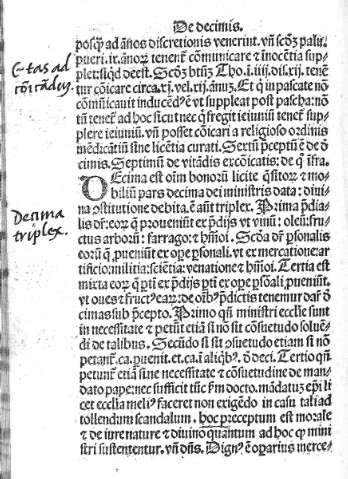 De decimis.
posqꝫ ad ãnos discretionis venerint. vñ scdꝫ palu.
pueri .ix. ãnorꝫ tenent̃ cõmunicare ⁊ ĩnocẽtia sup-
plet: siqd deest. Scdꝫ btũꝫ Tho. i .iiij. dis. xij. tenẽ
tur cõicare circa. xj. vel. xij. ãnuꝫ. Et q in pascate nõ
Etas ad
cõicãdũ.
cõmũicauit inducẽdꝰ ẽ vt suppleat post pascha: nõ
tñ tenet̃ ad hoc sicut nec q fregit ieiuniũ tenet̃ sup-
plere ieiuniũ. vñ posset cõicari a religioso ordinis
mẽdicãtiũ sine licẽtia curati. Sextũ p̃ceptũ ẽ de de
cimis. Septimũ de vitãdis excõicatis: de q ĩfra.
Decima est oĩm bonorũ licite q̃sitorꝫ ⁊ mo-
biliũ pars decima dei ministris data: diui-
na ꝯstitutione debita. ẽ aũt triplex. Prima p̃dia-
Decima
triplex.
lis dr̃: eorꝫ q proueniũt ex p̃dijs vt vinũ: oleũ: fru-
ctus arborũ: farrago: ⁊ hmõi. Scda dr̃ ꝑsonalis
eorũ q ꝓueniũt ex oꝑe ꝑsonali. vt ex mercatione: ar
tificio: militia: sciẽtia: venatione ⁊ hmõi. Tertia est
mixta eorꝫ q ꝑti ex p̃dijs ꝑti ex oꝑe ꝑsõali ꝓueniũt.
vt oues ⁊ fructꝰ earꝫ: de oĩbꝰ p̃dictis tenemur dar̃ de
cimas sub p̃cepto. Primo qñ ministri ecclie sunt
in necessitate ⁊ petũt etiã si nõ sit cõsuetudo soluẽ-
di de talibus. Secũdo si sit ꝯsuetudo etiam si nõ
petant̃. ca. ꝓuenit. et. ca. ĩ aliqbꝰ. õ deci. Tertio qñ
petunt̃ etiã sine necessitate ⁊ cõsuetudine de man-
dato pape: nec sufficit tũc ẜm docto. mãdatuꝫ ep̃i li
cet ecclia meliꝰ faceret non exigẽdo in casu tali ad
tollendum scandalum. hoc preceptum est morale
⁊ de iure nature ⁊ diuino quantum ad hoc ꝙ mini
stri sustententur. vñ dñs. Dignꝰ ẽ oꝑarius merce-